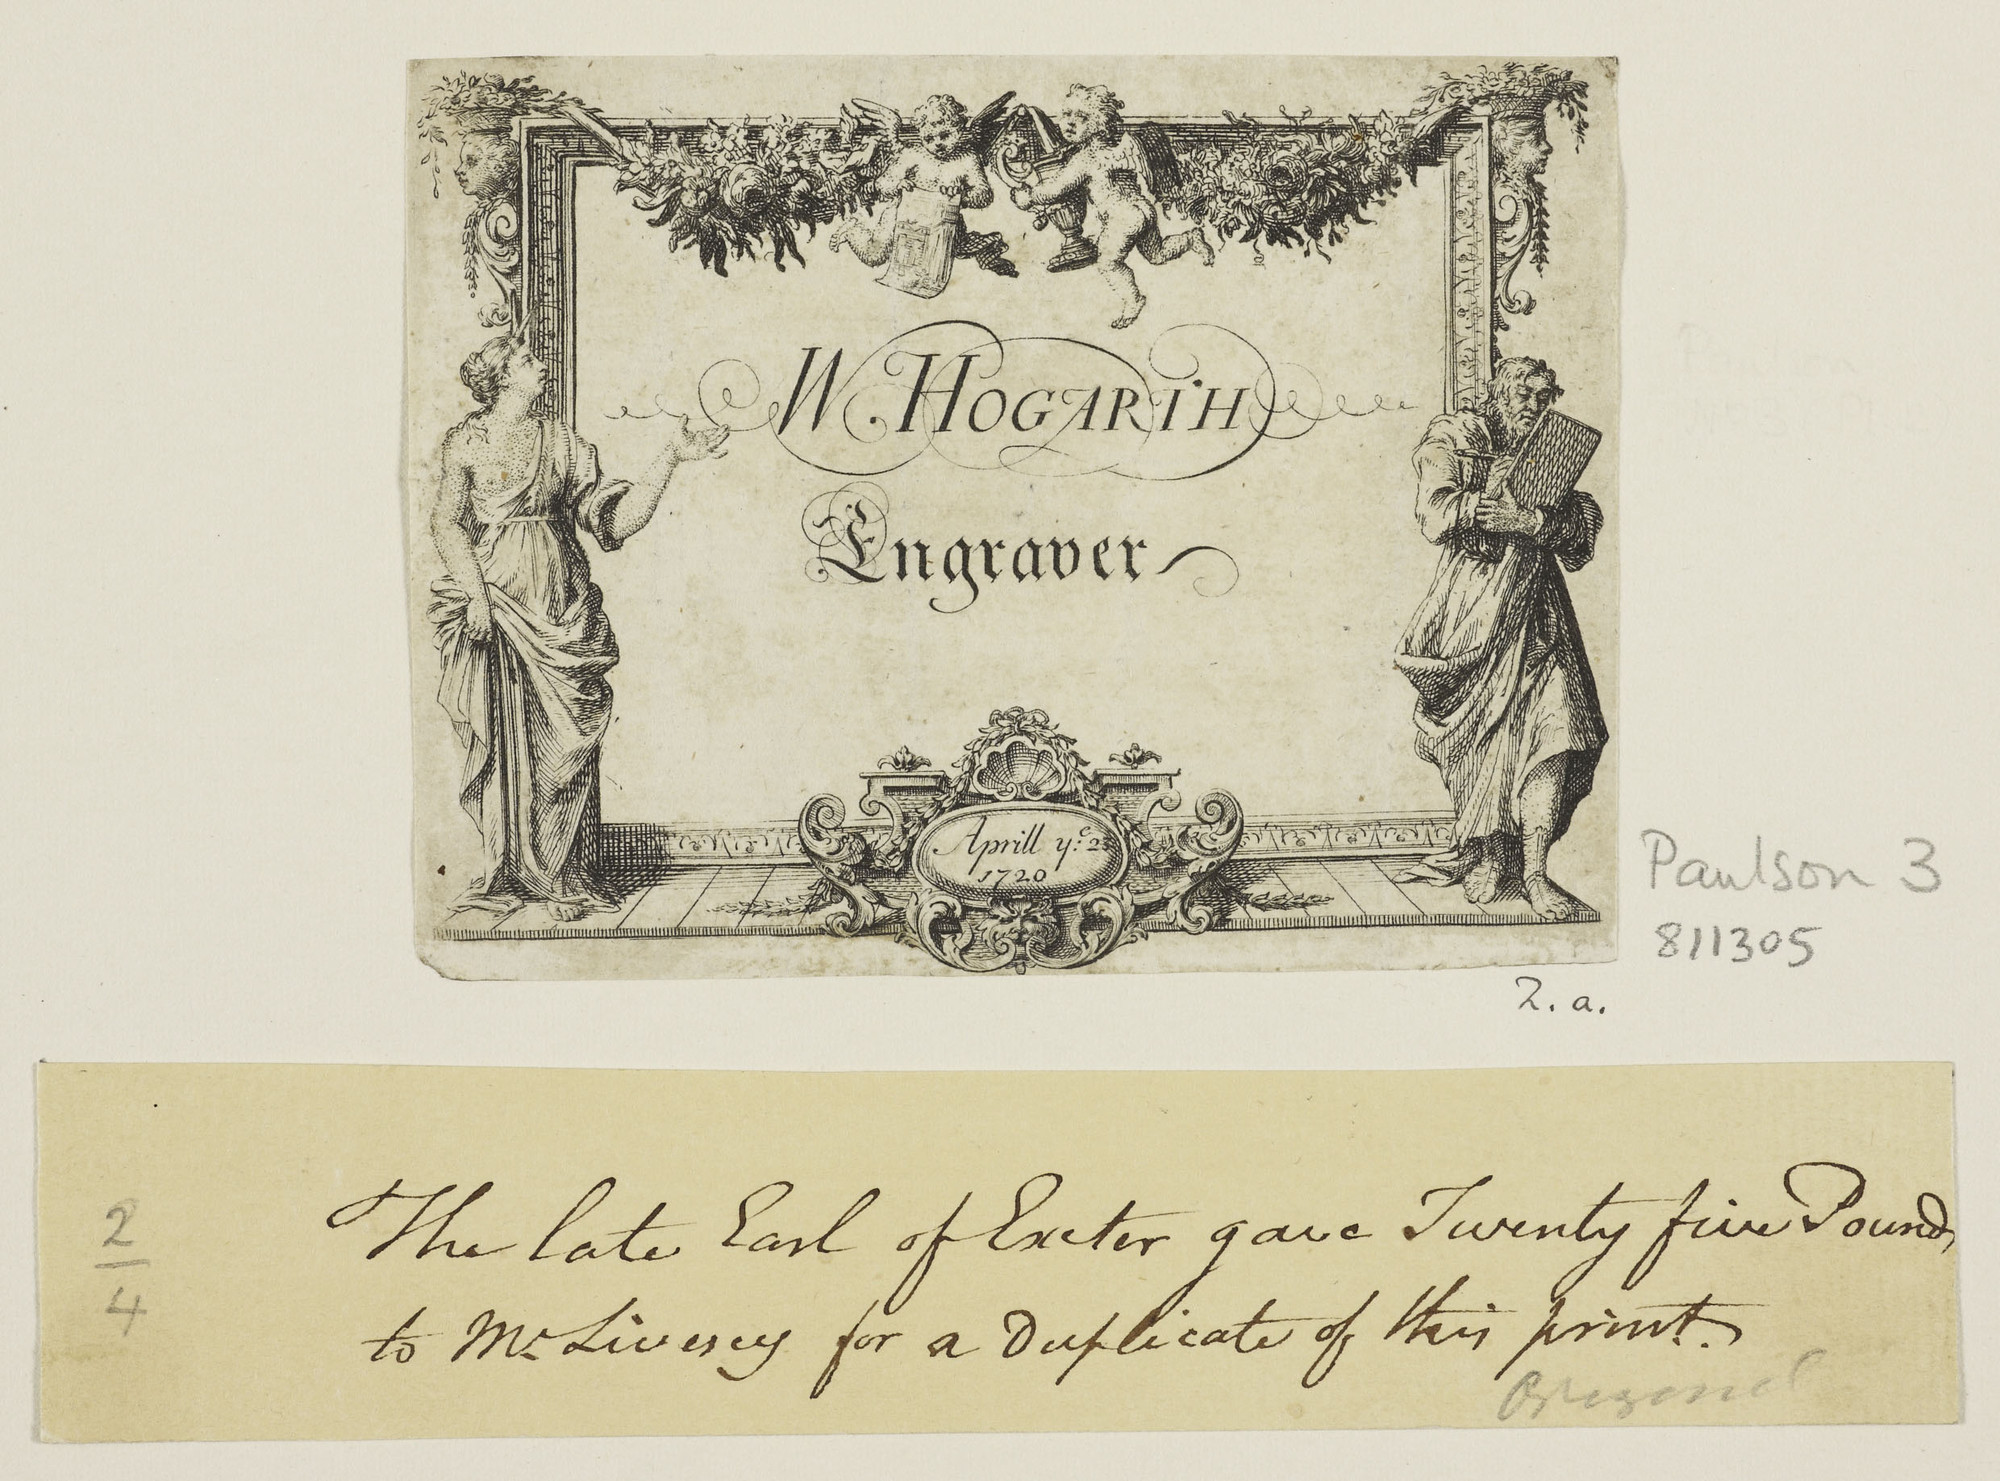 W. HOGARTH
Engraver
Aprill yᵉ: 23
1720
Paulson 3
811305
2. a.
2
4
The late Earl of Exeter gave Twenty five Pounds
to Mr Livesey for a Duplicate of this print.
Original